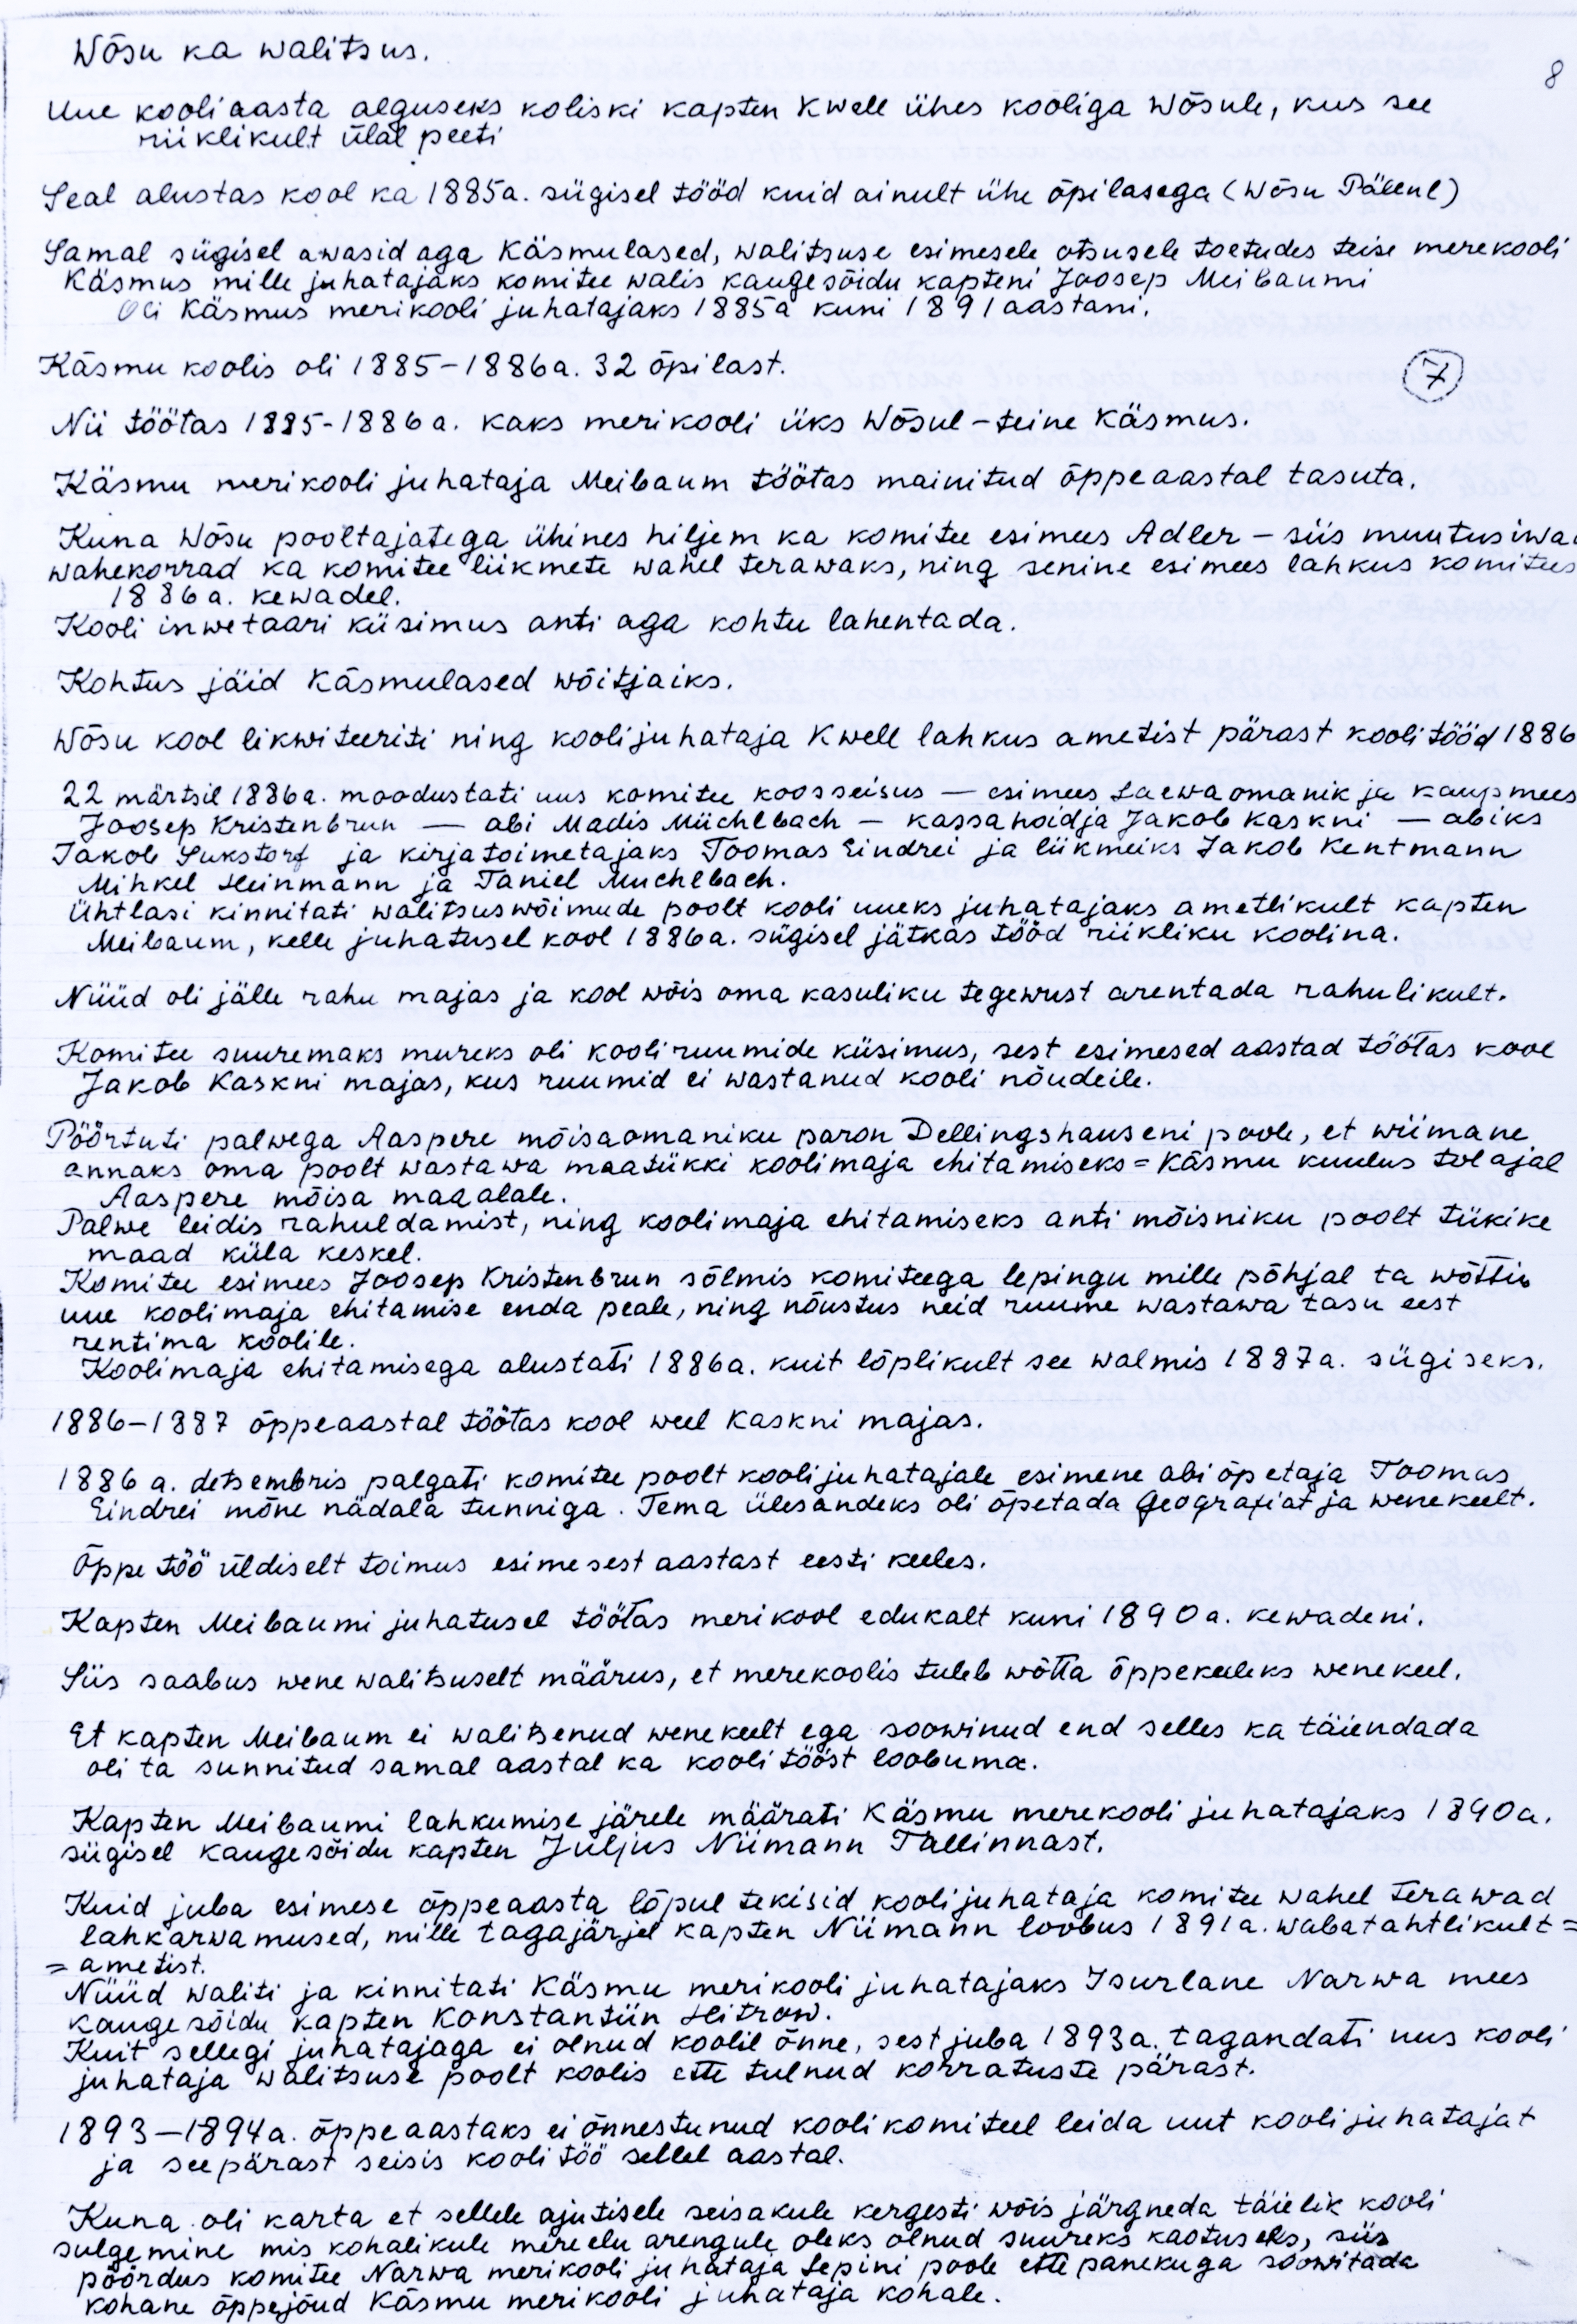 Wõsu ka walitsus.
8
Uue kooliaasta alguseks koliski kapten Kwell ühes kooliga Wõsule, kus see
riiklikult ülal peeti
Seal alustas kool ka 1885a. sügisel tööd kuid ainult ühe õpilasega (Wõsu Pällul)
Samal sügisel awasid aga Käsmulased, walitsuse esimesele otsusele toetudes teise merekooli
Käsmus mille juhatajaks komitee walis kaugesõidu kapteni Joosep Meibaumi
Oli Käsmus merikooli juhatajaks 1885a kuni 1891 aastani.
Käsmu koolis oli 1885-1886a. 32 õpilast.
7
Nii töötas 1885-1886a. kaks merikooli üks Wõsul - teine Käsmus.
Käsmu merikooli juhataja Meibaum töötas mainitud õppeaastal tasuta.
Kuna Wõsu pooltajatega ühines hiljem ka komitee esimees Adler - siis muutusiwa
wahekorrad ka komitee liikmete wahel terawaks, ning senine esimees lahkus komitees
1886a. kewadel.
Kooli inwetaari küsimus anti aga kohtu lahentada.
Kohtus jäid Käsmulased wõitjaiks.
Wõsu kool likwiteeriti ning koolijuhataja Kwell lahkus ametist pärast koolitööd 1886
22 märtsil 1886a. moodustati uus komitee koosseisus — esimees Laewaomanik ja kaupmees
Joosep Kristenbrun — abi Madis Müchlbach — kassahoidja Jakob Kaskni — abiks
Jakob Sukstorf ja kirjatoimetajaks Toomas Eindrei ja liikmeiks Jakob Kentmann
Mihkel Heinmann ja Taniel Muchlbach.
Ühtlasi kinnitati walitsuswõimude poolt kooli uueks juhatajaks ametlikult kapten
Meibaum, kelle juhatusel kool 1886a. sügisel jätkas tööd riikliku koolina.
Nüüd oli jälle rahu majas ja kool wõis oma kasuliku tegewust arentada rahulikult.
Komitee suuremaks mureks oli kooliruumide küsimus, sest esimesed aastad töötas kool
Jakob Kaskni majas, kus ruumid ei wastanud kooli nõudeile.
Pöörtuti palwega Aaspere mõisaomaniku paron Dellingshauseni poole, et wiimane
annaks oma poolt wastawa maatükki koolimaja ehitamiseks = Käsmu kuulus tol ajal
Aaspere mõisa maaalale.
Palwe leidis rahuldamist, ning koolimaja ehitamiseks anti mõisniku poolt tükike
maad küla keskel.
Komitee esimees Joosep Kristenbrun sõlmis komiteega lepingu mille põhjal ta wõttis
uue koolimaja ehitamise enda peale, ning nõustus neid ruume wastawa tasu eest
rentima koolile.
Koolimaja ehitamisega alustati 1886a. kuit lõplikult see walmis 1887a. sügiseks.
1886-1887 õppeaastal töötas kool weel Kaskni majas.
1886 a. detsembris palgati komitee poolt koolijuhatajale esimene abiõpetaja Toomas
Eindrei mõne nädala tunniga. Tema ülesandeks oli õpetada geografiat ja wenekeelt.
Õppe töö üldiselt toimus esimesest aastast eesti keeles.
Kapten Meibaumi juhatusel töötas merikool edukalt kuni 1890a. kewadeni.
Siis saabus wene walitsuselt määrus, et merekoolis tuleb wõtta õppekeeleks wenekeel.
Et kapten Meibaum ei walitsenud wenekeelt ega soowinud end selles ka täiendada
oli ta sunnitud samal aastal ka koolitööst loobuma.
Kapten Meibaumi lahkumise järele määrati Käsmu merekooli juhatajaks 1890a.
sügisel kaugesõidu kapten Juljus Niimann Tallinnast.
Kuid juba esimese õppeaasta lõpul tekisid koolijuhataja komitee wahel terawad
lahkarwamused, mille tagajärjel kapten Niimann loobus 1891a. wabatahtlikult =
= ametist.
Nüüd waliti ja kinnitati Käsmu merikooli juhatajaks Isurlane Narwa mees
kaugesõidu kapten Konstantiin Hitrow.
Kuit sellegi juhatajaga ei olnud koolil õnne, sest juba 1893a. tagandati uus kooli
juhataja walitsuse poolt koolis ette tulnud korratuste pärast.
1893-1894a. õppeaastaks ei õnnestunud koolikomiteel leida uut koolijuhatajat
ja seepärast seisis koolitöö sellel aastal.
Kuna oli karta et sellele ajutisele seisakule kergesti wõis järgneda täielik kooli
sulgemine mis kohalikule mereelu arengule oleks olnud suureks kaotuseks, siis
pöördus komitee Narwa merikooli juhataja Lepini poole ettepanekuga soowitada
kohane õppejõud Käsmu merikooli juhataja kohale.